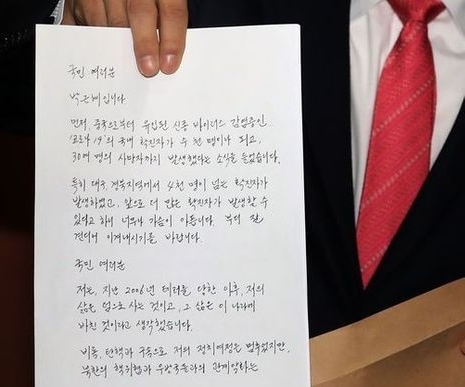 국민 여러분
박근혜입니다
먼저, 중국으로부터 유입된 신종 바이러스 감염증인
'코로나 19'의 국내 확진자가 수 천 명이나 되고,
30여 명의 사망자까지 발생했다는 소식을 들었습니다.
특히 대구·경북지역에서 4천 명이 넘는 확진자가
발생하였고, 앞으로 더 많은 확진자가 발생할 수
있다고 하니 너무나 가슴이 아픕니다. 부디 잘
견디어 이겨내시기를 바랍니다.
국민 여러분
저는, 지난 2006년 테러를 당한 이후, 저의
삶은 덤으로 사는 것이고, 그 삶은 이 나라에
바친 것이라고 생각했습니다.
비록, 탄핵과 구속으로 저의 정치여정은 멈추었지만,
북한의 핵위협과 우방국들과의 관계악화는